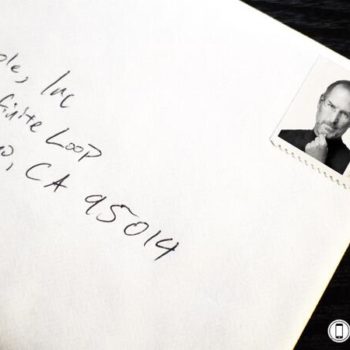 ple, Inc
finite Loop
no, CA 95014